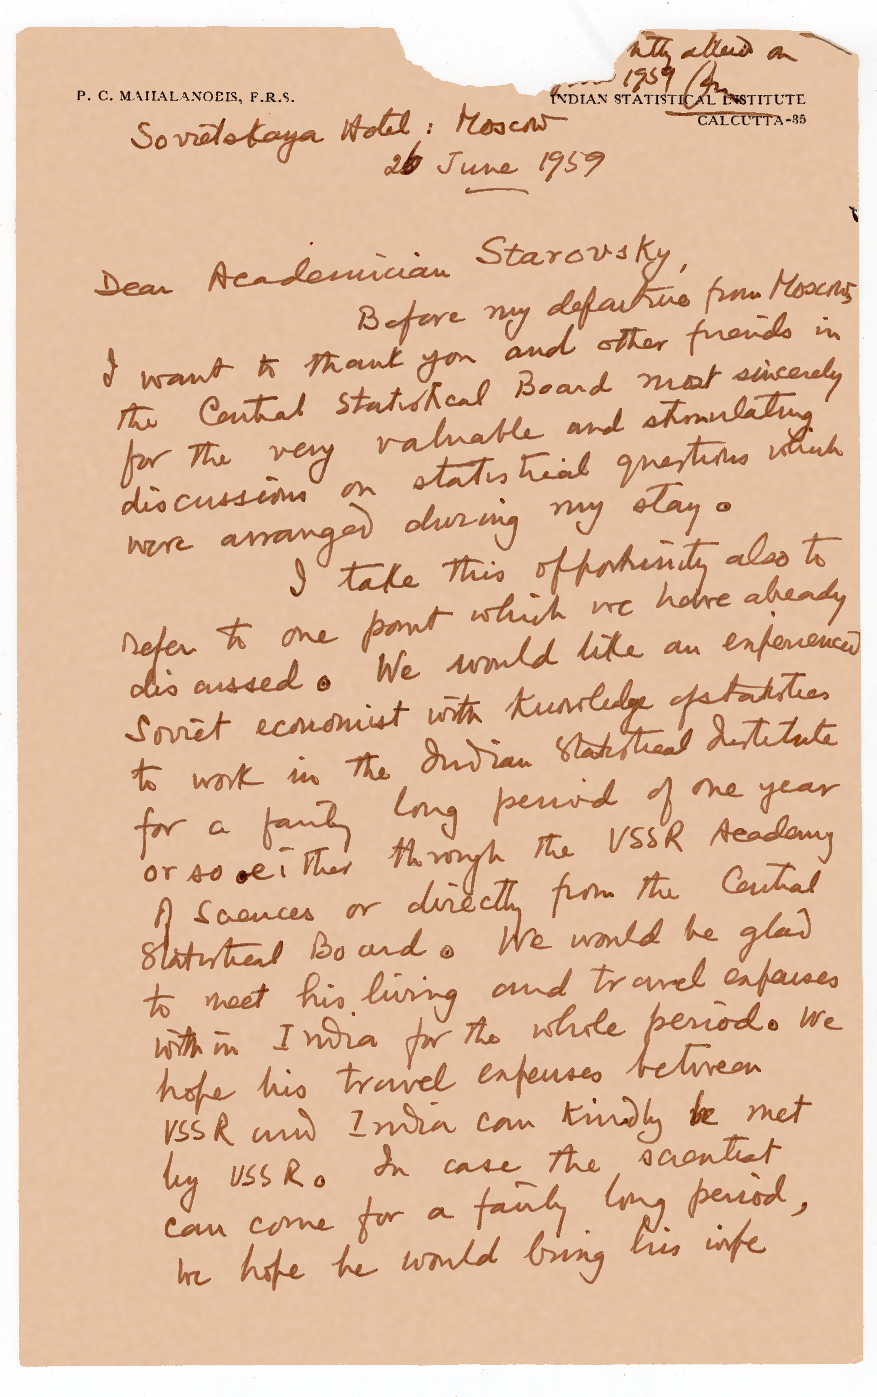 1959
P. C. MAHALANOBIS, F.R.S.
INDIAN STATISTICAL INSTITUTE
CALCUTTA-35
Sovietskaya Hotel : Moscow
26 June 1959
Dear Academician Starovsky,
Before my departure from Moscow,
I want to thank you and other friends in
the Central Statistical Board most sincerely
for the very valuable and stimulating
discussions on statistical questions which
were arranged during my stay.
I take this opportunity also to
refer to one point which we have already
discussed. We would like an experienced
Soviet economist with knowledge of statistics
to work in the Indian Statistical Institute
for a fairly long period of one year
or so either through the USSR Academy
of Sciences or directly from the Central
Statistical Board. We would be glad
to meet his living and travel expenses
within India for the whole period. We
hope his travel expenses between
USSR and India can kindly be met
by USSR. In case the scientist
can come for a fairly long period,
we hope he would bring his wife